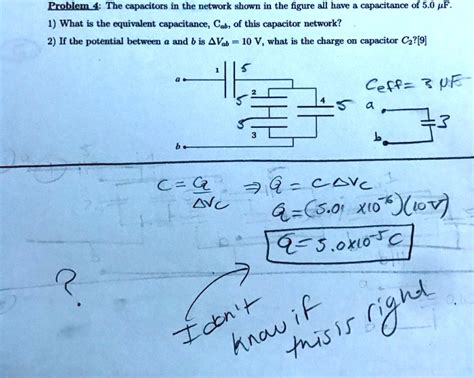 Problem 4: The capacitors in the network shown in the figure all have a capacitance of 5.0 μF.
1) What is the equivalent capacitance, Cab, of this capacitor network?
2) If the potential between a and b is ΔVab = 10 V, what is the charge on capacitor C2?[9]
1 5
a
2
5
4 5
5
3
b
Ceff= 3 μF
a
3
b
C = Q/ΔVc ⇒ Q = CΔVc
Q=(5.01 x10^-6)(10V)
Q=5.0x10^-5 C
?
I don't
know if
this is right